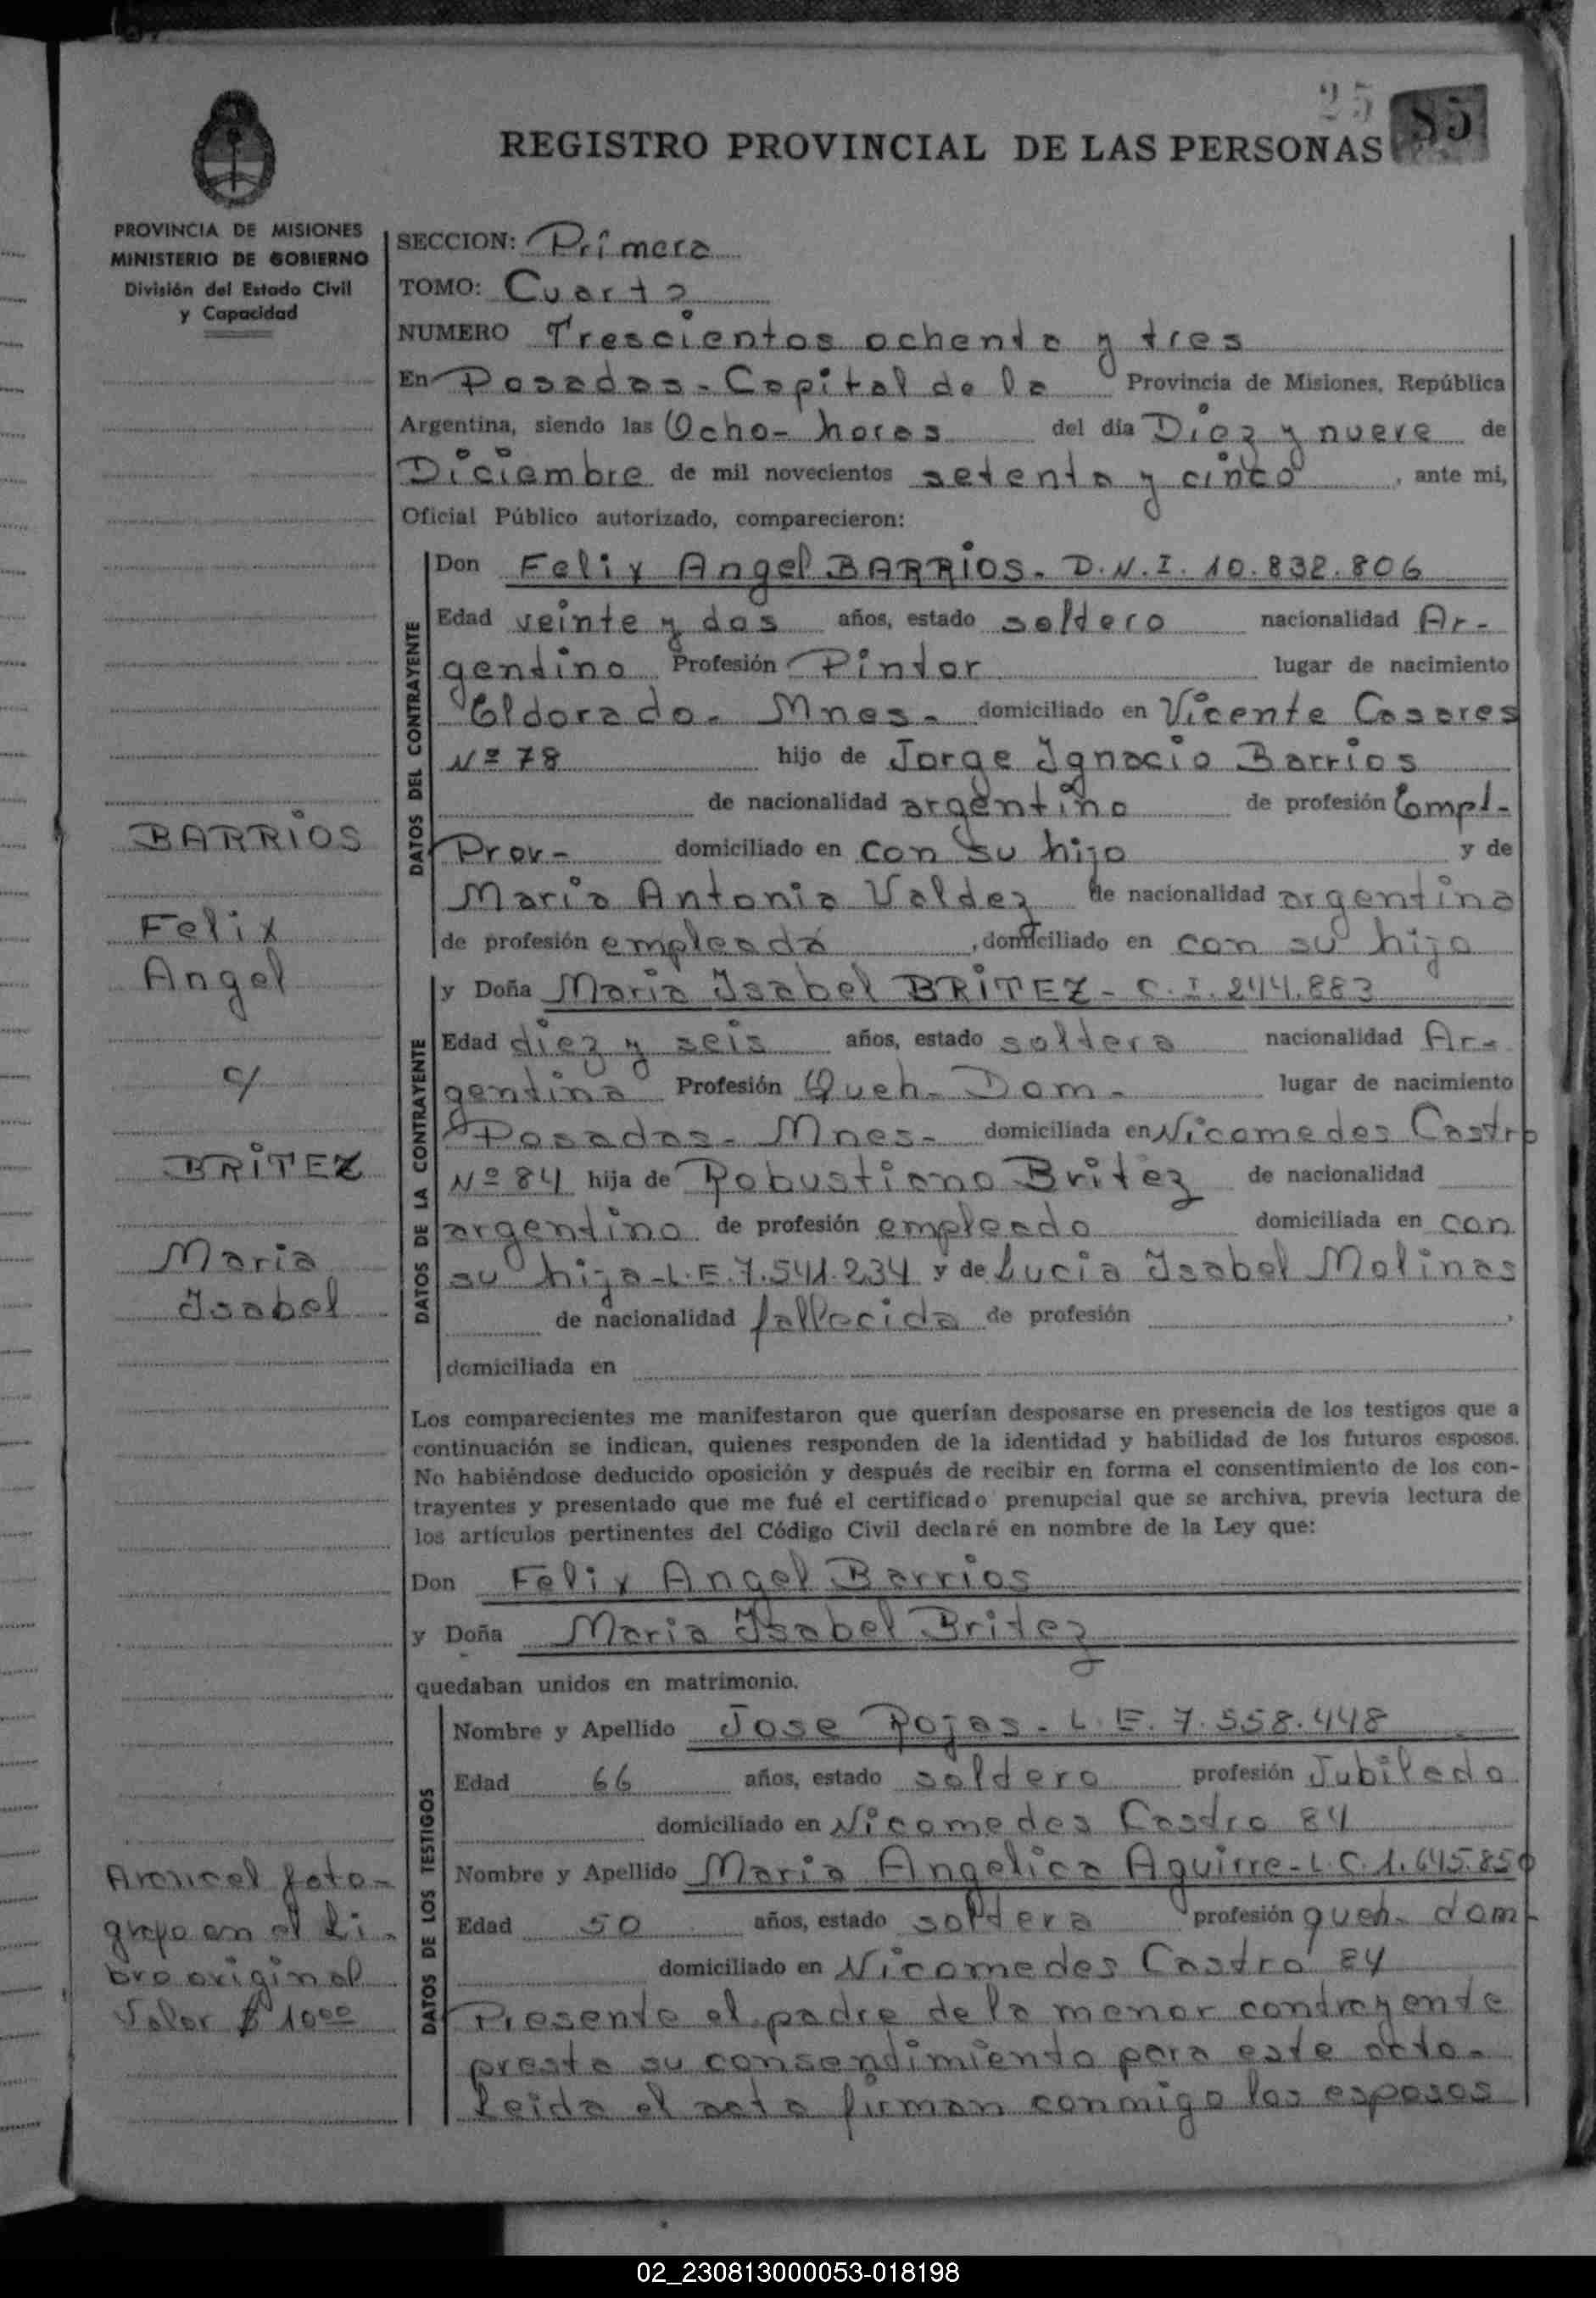 25 85
REGISTRO PROVINCIAL DE LAS PERSONAS
PROVINCIA DE MISIONES
MINISTERIO DE GOBIERNO
División del Estado Civil
y Capacidad
SECCION: Primera
TOMO: Cuarto
NUMERO Trescientos ochenta y tres
En Posadas - Capital de la Provincia de Misiones, República
Argentina, siendo las Ocho - horas del día Diez y nueve de
Diciembre de mil novecientos setenta y cinco, ante mi,
Oficial Público autorizado, comparecieron:
DATOS DEL CONTRAYENTE
Don Felix Angel BARRIOS - D.N.I. 10.832.806
Edad veinte y dos años, estado soltero nacionalidad Ar-
gentino Profesión Pintor lugar de nacimiento
Eldorado - Mnes - domiciliado en Vicente Casares
Nº 78 hijo de Jorge Ignacio Barrios
de nacionalidad argentino de profesión Empl-
Prov - domiciliado en con su hijo y de
Maria Antonia Valdez de nacionalidad argentina
de profesión empleada, domiciliado en con su hijo
DATOS DE LA CONTRAYENTE
y Doña Maria Isabel BRITEZ - C.I. 244.883
Edad diez y seis años, estado soltera nacionalidad Ar-
gentina Profesión Queh - Dom - lugar de nacimiento
Posadas - Mnes - domiciliada en Nicomedes Castro
Nº 84 hija de Robustiano Britez de nacionalidad
argentino de profesión empleado domiciliada en con
su hija - L.E. 7.541.234 y de Lucia Isabel Molinas
de nacionalidad fallecida de profesión ,
domiciliada en
Los comparecientes me manifestaron que querían desposarse en presencia de los testigos que a
continuación se indican, quienes responden de la identidad y habilidad de los futuros esposos.
No habiéndose deducido oposición y después de recibir en forma el consentimiento de los con-
trayentes y presentado que me fué el certificado prenupcial que se archiva, previa lectura de
los artículos pertinentes del Código Civil declaré en nombre de la Ley que:
Don Felix Angel Barrios
y Doña Maria Isabel Britez
quedaban unidos en matrimonio.
DATOS DE LOS TESTIGOS
Nombre y Apellido Jose Rojas - L.E. 7.558.448
Edad 66 años, estado soltero profesión Jubilado
domiciliado en Nicomedes Castro 84
Nombre y Apellido Maria Angelica Aguirre - L.C. 1.645.850
Edad 50 años, estado soltera profesión queh - dom -
domiciliado en Nicomedes Castro 84
Presente el padre de la menor contrayente
presta su consentimiento para este acto -
Leida el acta firman conmigo los esposos
BARRIOS
Felix
Angel
c/
BRITEZ
Maria
Isabel
Arancel foto-
grafo en el Li-
bro original
Valor $ 10oo
02_230813000053-018198